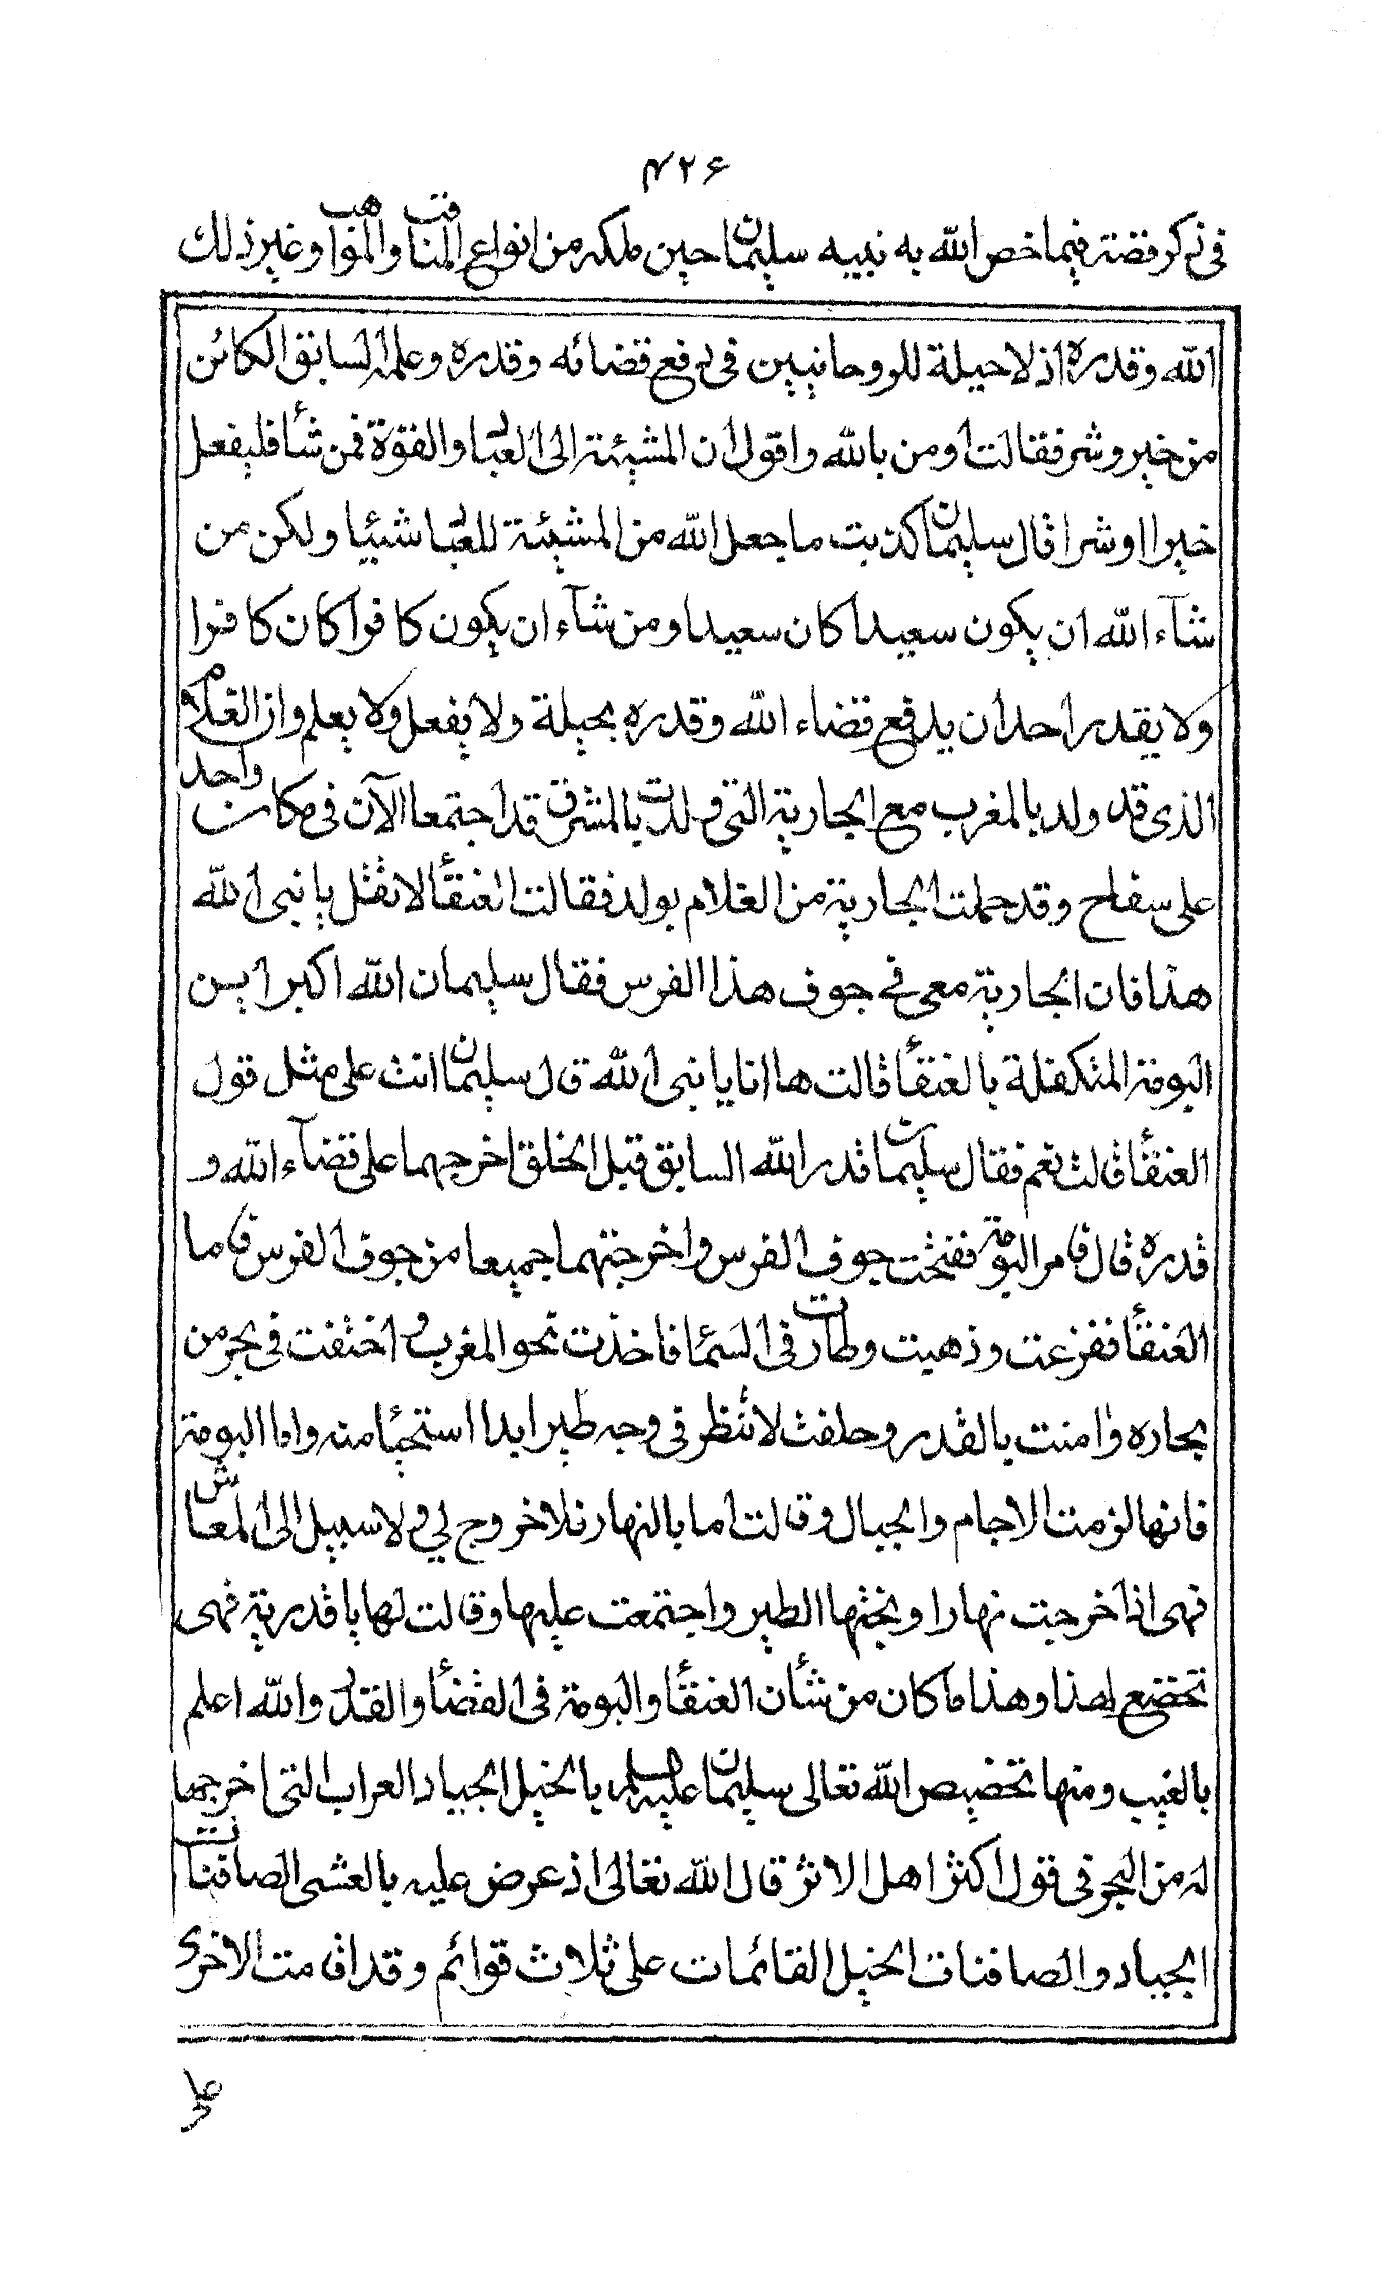 ۴۲۶
في ذكر قصة فيما خص الله به نبيه سليمان حين ملكه من انواع المناقب والمواهب وغير ذلك
الله وقدره اذ لا حيلة للروحانيين في دفع قضائه وقدره وعلمه السابق الكائن
من خير وشر فقالت اومن بالله واقول ان المشيئة الى العباد والقوة فمن شاء فليفعل
خيرا او شرا قال سليمان كذبت ما جعل الله من المشيئة للعباد شيئا ولكن من
شآء الله ان يكون سعيدا كان سعيدا ومن شآء ان يكون كافرا كان كافرا
ولا يقدر احد ان يدفع قضاء الله وقدره بحيلة ولا يفعل ولا يعلم وان الغلام
الذي قد ولد بالمغرب مع الجارية التي ولدت بالمشرق قد اجتمعا الآن في مكان واحد
على سفاح وقد حملت الجارية من الغلام بولد فقالت العنقاء لا تقل يا نبي الله
هذا فان الجارية معي في جوف هذا الفرس فقال سليمان الله اكبر اين
البومة المتكفلة بالعنقاء قالت ها انا يا نبي الله قال سليمان انت على مثل قول
العنقاء قالت نعم فقال سليمان قدر الله السابق قبل الخلق اخرجهما على قضآء الله و
قدره قال فامر البومة ففتحت جوف الفرس واخرجتهما جميعا من جوف الفرس فاما
العنقاء ففزعت وذهبت وطارت في السماء فاخذت نحو المغرب واختفت في بحر من
بحاره وامنت بالقدر وحلفت لا تنظر في وجه طير ابدا استحياء منه واما البومة
فانها لزمت الاجام والجبال وقالت اما بالنهار فلا خروج لي ولا سبيل الى المعاش
فهي اذا خرجت نهارا وبختها الطير واجتمعت عليها وقالت لها يا قدرية فهي
تخضع لهذا وهذا ما كان من شأن العنقاء والبومة في القضاء والقدر والله اعلم
بالغيب ومنها تخصيص الله تعالى سليمان عليه السلام بالخيل الجياد العراب التي اخرجها
له من البحر في قول اكثر اهل الاثر قال الله تعالى اذ عرض عليه بالعشي الصافنات
الجياد والصافنات الخيل القائمات على ثلاث قوائم وقد اقامت الاخرى